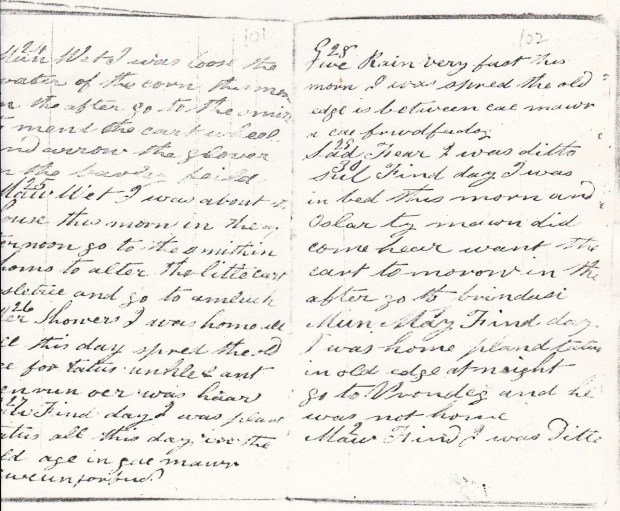 101
24
Mun Wet I was loose the
water of the corn this morn
in the after go to the smith
to mend the cart wheel
and arrow the glover
in the feild
25
Maw Wet I was about the
house this morn in the af
ternoon go to the smith in
to alter the little cart
and go to amluch
26
Mer Showers I was home all
all this day spred the old
for tatus unkle & ant
oer was hear
27
Find day I was plant
tatus all this day the
old age in gae mawr
102
G 28
Gwe Rain very fast this
morn I was spred the old
edge is between cae mawr
a cae
29
Sad Fear I was ditto
30
Sul Find day I was
in bed this morn and
Oslar ty mawn did
come hear want the
cart tomorow in the
after go to brindusi
Mun May Find day
I was home pland tatus
in old edge at night
go to Vrondeg and he
was not home
2
Maw Find I was Ditto